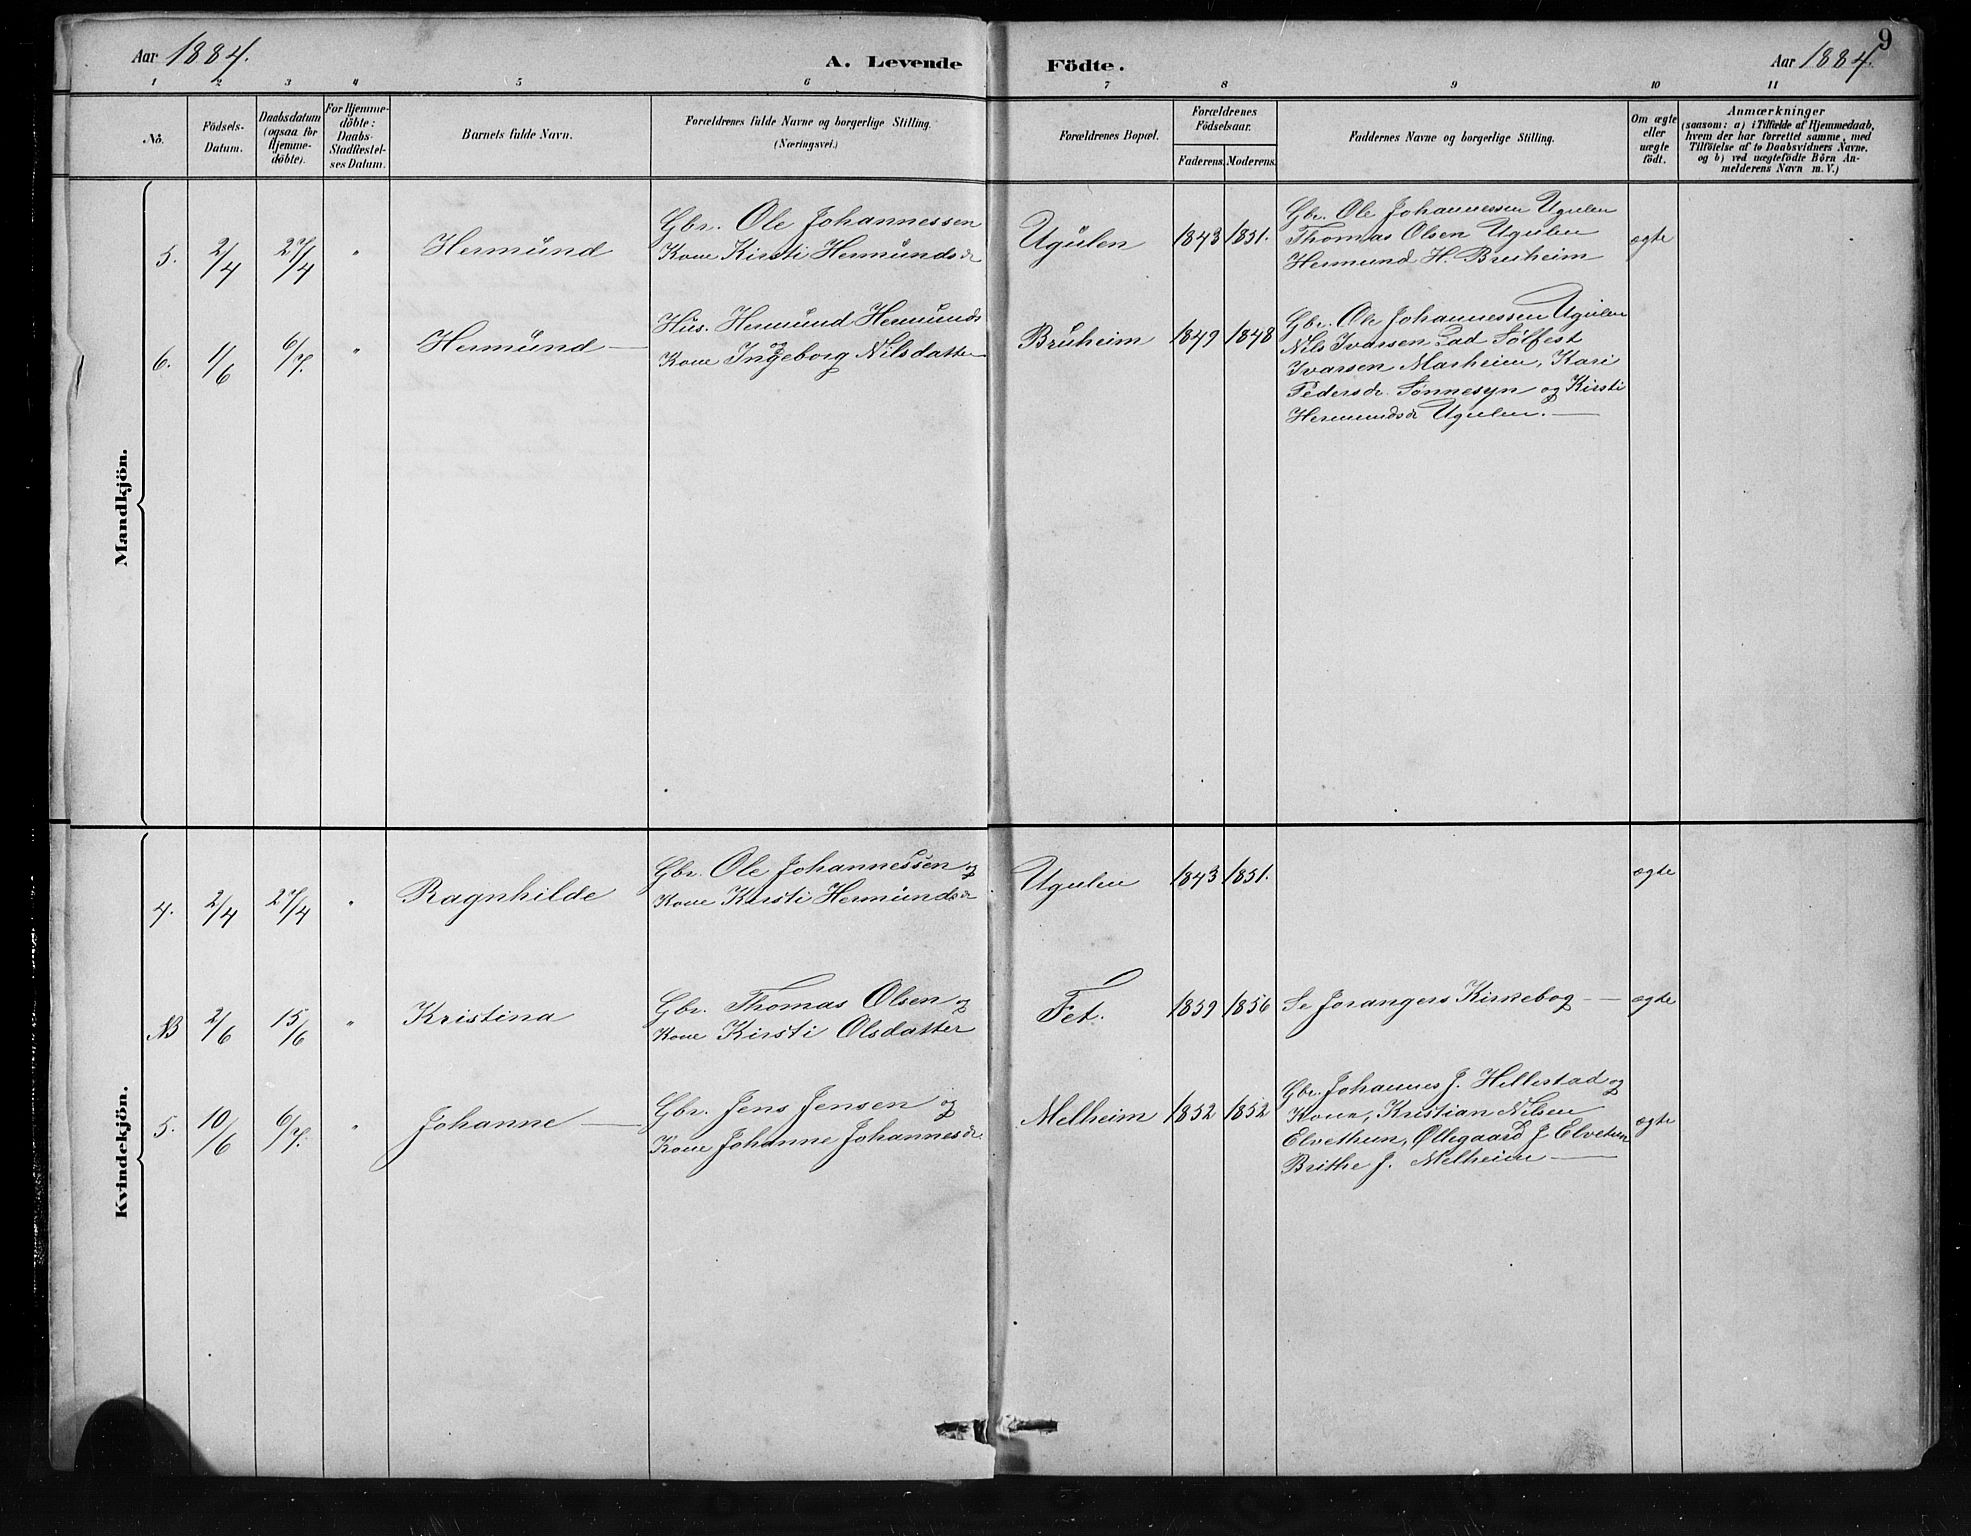 Aar 1884.
A. Levende Födte.
Aar 1884.
9
1 2 3 4 5 6 7 8 9 10 11
No.
Födsels-Datum.
Daabsdatum (ogsaa for Hjemme-döbte).
For Hjemme-döbte: Daabs-Stadfæstel-ses Datum.
Barnets fulde Navn.
Forældrenes fulde Navne og borgerlige Stilling.
(Næringsvei.)
Forældrenes Bopæl.
Forældrenes Födselsaar.
Faderens. Moderens.
Faddernes Navne og borgerlige Stilling.
Om ægte eller uægte født.
Anmærkninger
(saasom: a) i Tilfælde af Hjemmedaab,
hvem der har forrettet samme, med
Tilföielse af to Daabsvidners Navne.
og b) ved uægtefödte Börn An-
melderens Navn m. V.)
Mandkjön.
5. 2/4 27/4 " Hermund
Gbr. Ole Johannessen
Kone Kirsti Hermundsdr
Ugulen 1843 1851.
Gbr. Ole Johannessen Ugulen
Thomas Olsen Ugulen
Hermund H. Bruheim
ægte
6. 1/6 6/7. " Hermund —
Hus. Hermund Hermunds
Kone Ingeborg Nilsdatter
Bruheim 1849 1848
Gbr. Ole Johannessen Ugulen
Nils Ivarsen Sølfest
Ivarsen Marheim, Kari
Pedersdr. Sønnesyn og Kirsti
Hermundsdr Ugulen. —
Kvindekjön.
4. 2/4 27/4 " Ragnhilde
Gbr. Ole Johannessen og
Kone Kirsti Hermundsdr
Ugulen 1843 1851.
ægte
NB 2/6 15/6 " Kristina
Gbr. Thomas Olsen og
Kone Kirsti Olsdatter
Fet. 1859 1856
Se Joranger Kirkebog —
ægte
5. 10/6 6/7. " Johanne —
Gbr. Jens Jensen og
Kone Johanne Johannesdr.
Melheim 1852 1852
Gbr. Johannes J. Hellestad og
Kone, Kristian Nilsen
Elvethun, Øllegaard J Elvetun
Brithe J. Melheim —
ægte